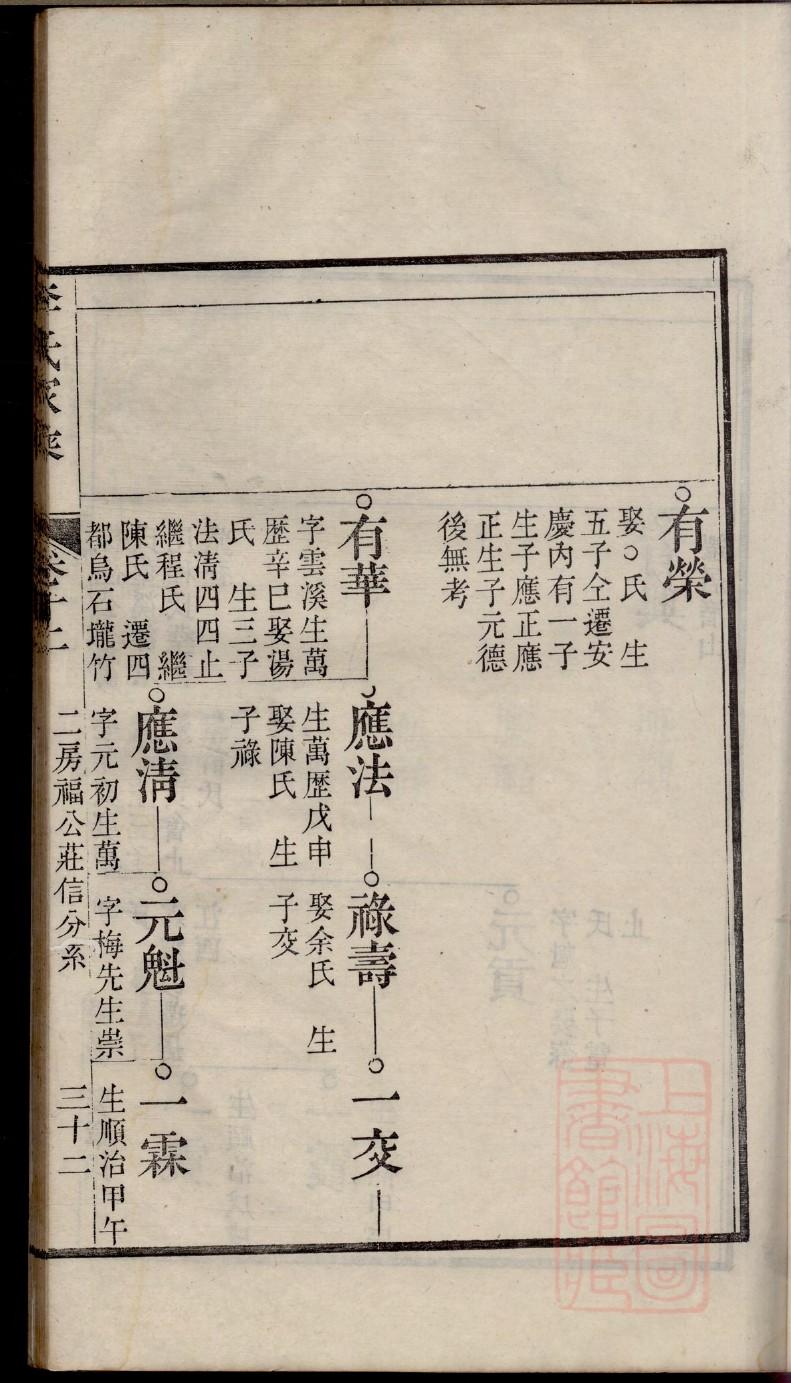 有榮
娶○氏　生
五子仝遷安
慶內有一子
生子應正應
正生子元德
後無考
有華
字雲溪生萬
歷辛巳娶湯
氏　生三子
法清四四止
繼程氏　繼
陳氏　遷四
都烏石壠竹
應法
生萬歷戊申
娶陳氏　生
子祿
祿壽
娶余氏　生
子交
一交
應清
字元初生萬
元魁
字梅先生崇
一霖
生順治甲午
二房福公莊信分系
三十二
李氏家乘
卷十二
上海圖書館藏